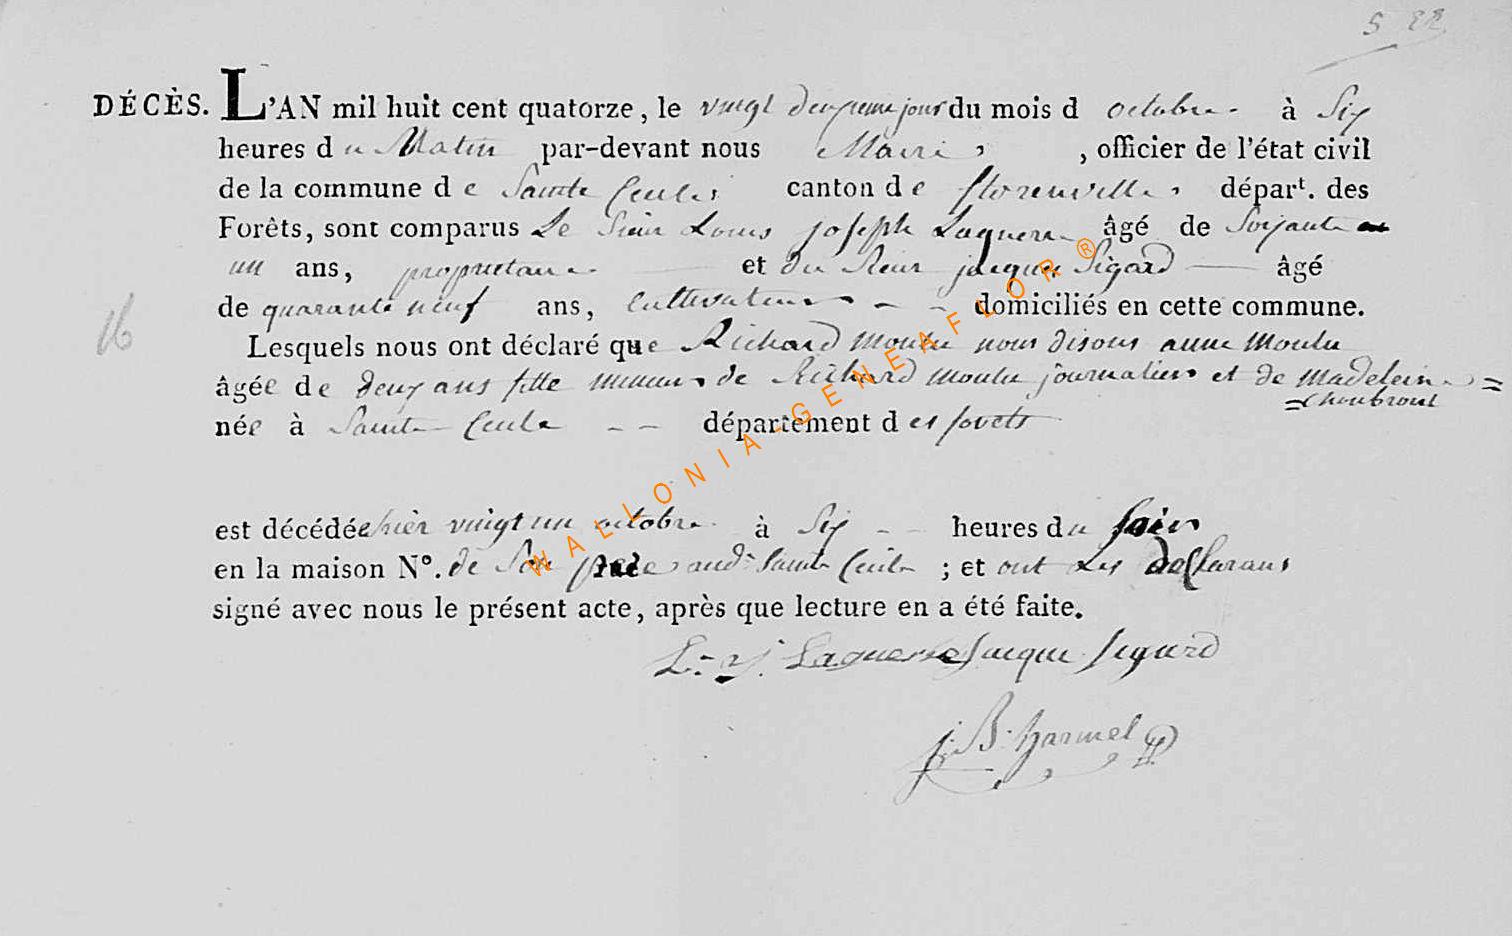 S 22
DÉCÈS. L'AN mil huit cent quatorze, le vingt deuxieme jour du mois d octobre à Six
heures du Matin par-devant nous Maire, officier de l'état civil
de la commune de Sainte Cecile canton de florenville, départ. des
Forêts, sont comparus Le Sieur Louis joseph Laguerre âgé de Soixante
un ans, proprietaire et du Sieur jacque Sigard âgé
de quarante neuf ans, Cultivateur domiciliés en cette commune.
16
Lesquels nous ont déclaré que Richard moulu nous disons anne Moulu
âgée de deux ans fille mineure de Richard moulu journalier et de Madeleine =
= Choubrout
née à Sainte Cecile département des forets
est décédée hier vingt un octobre à Six heures du soir
en la maison N°. de Son pere audt Sainte Cecile ; et ont Les declarans
signé avec nous le présent acte, après que lecture en a été faite.
L. J. Laguerre Jacque Sigard
j. B. harmel
WALLONIA-GENEAFLOR®